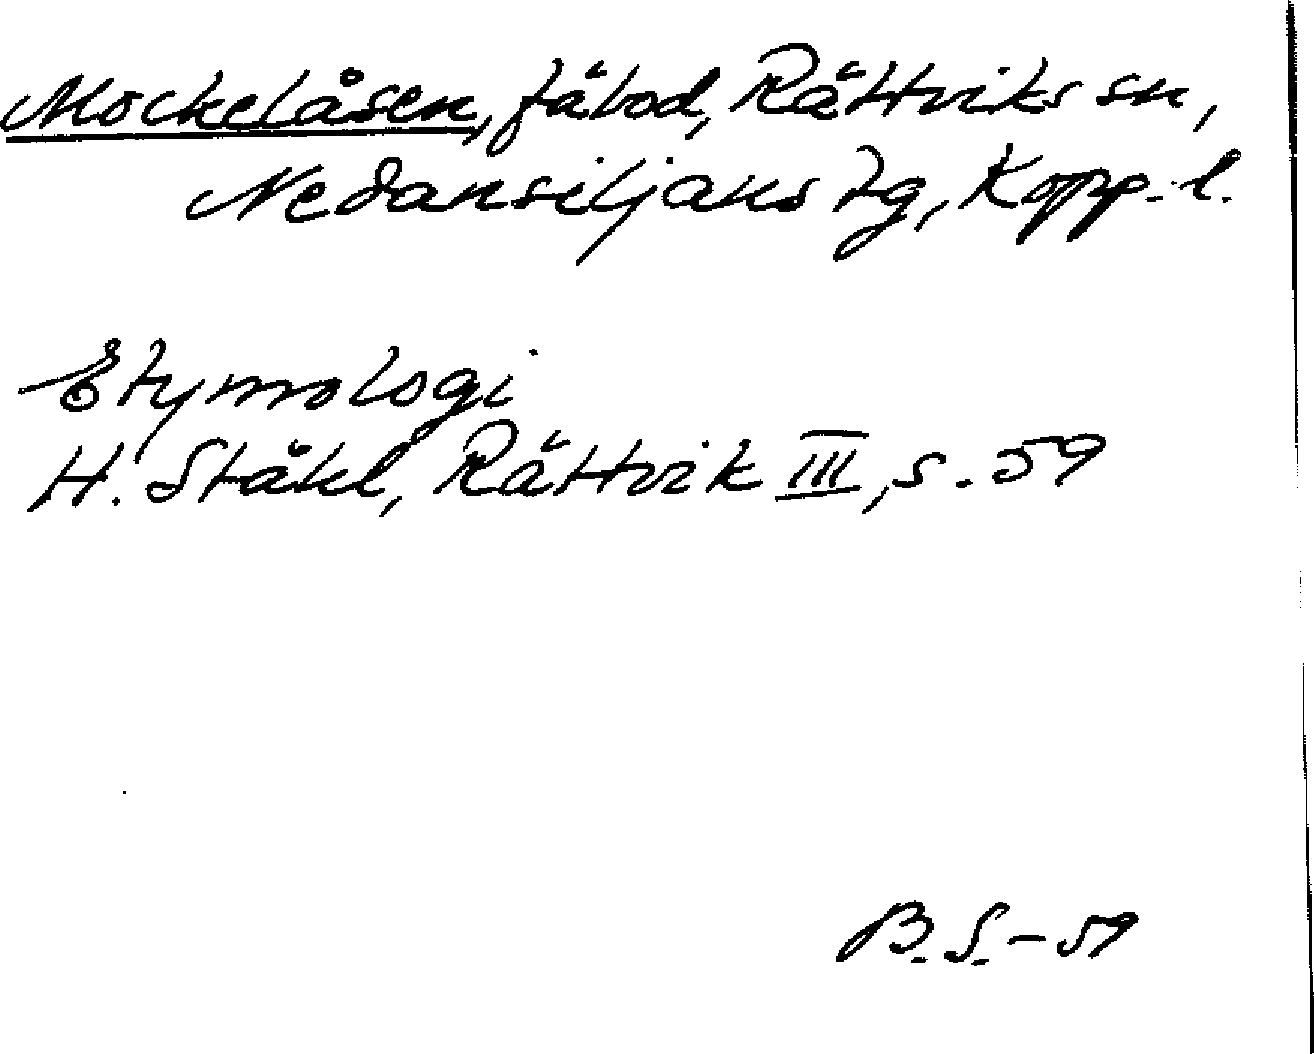 Mockelåsen, fäbod, Rättviks sn,
Nedansiljans tg, Kopp. l.
Etymologi
H. Ståhl, Rättvik III, s. 59
B.S.-59